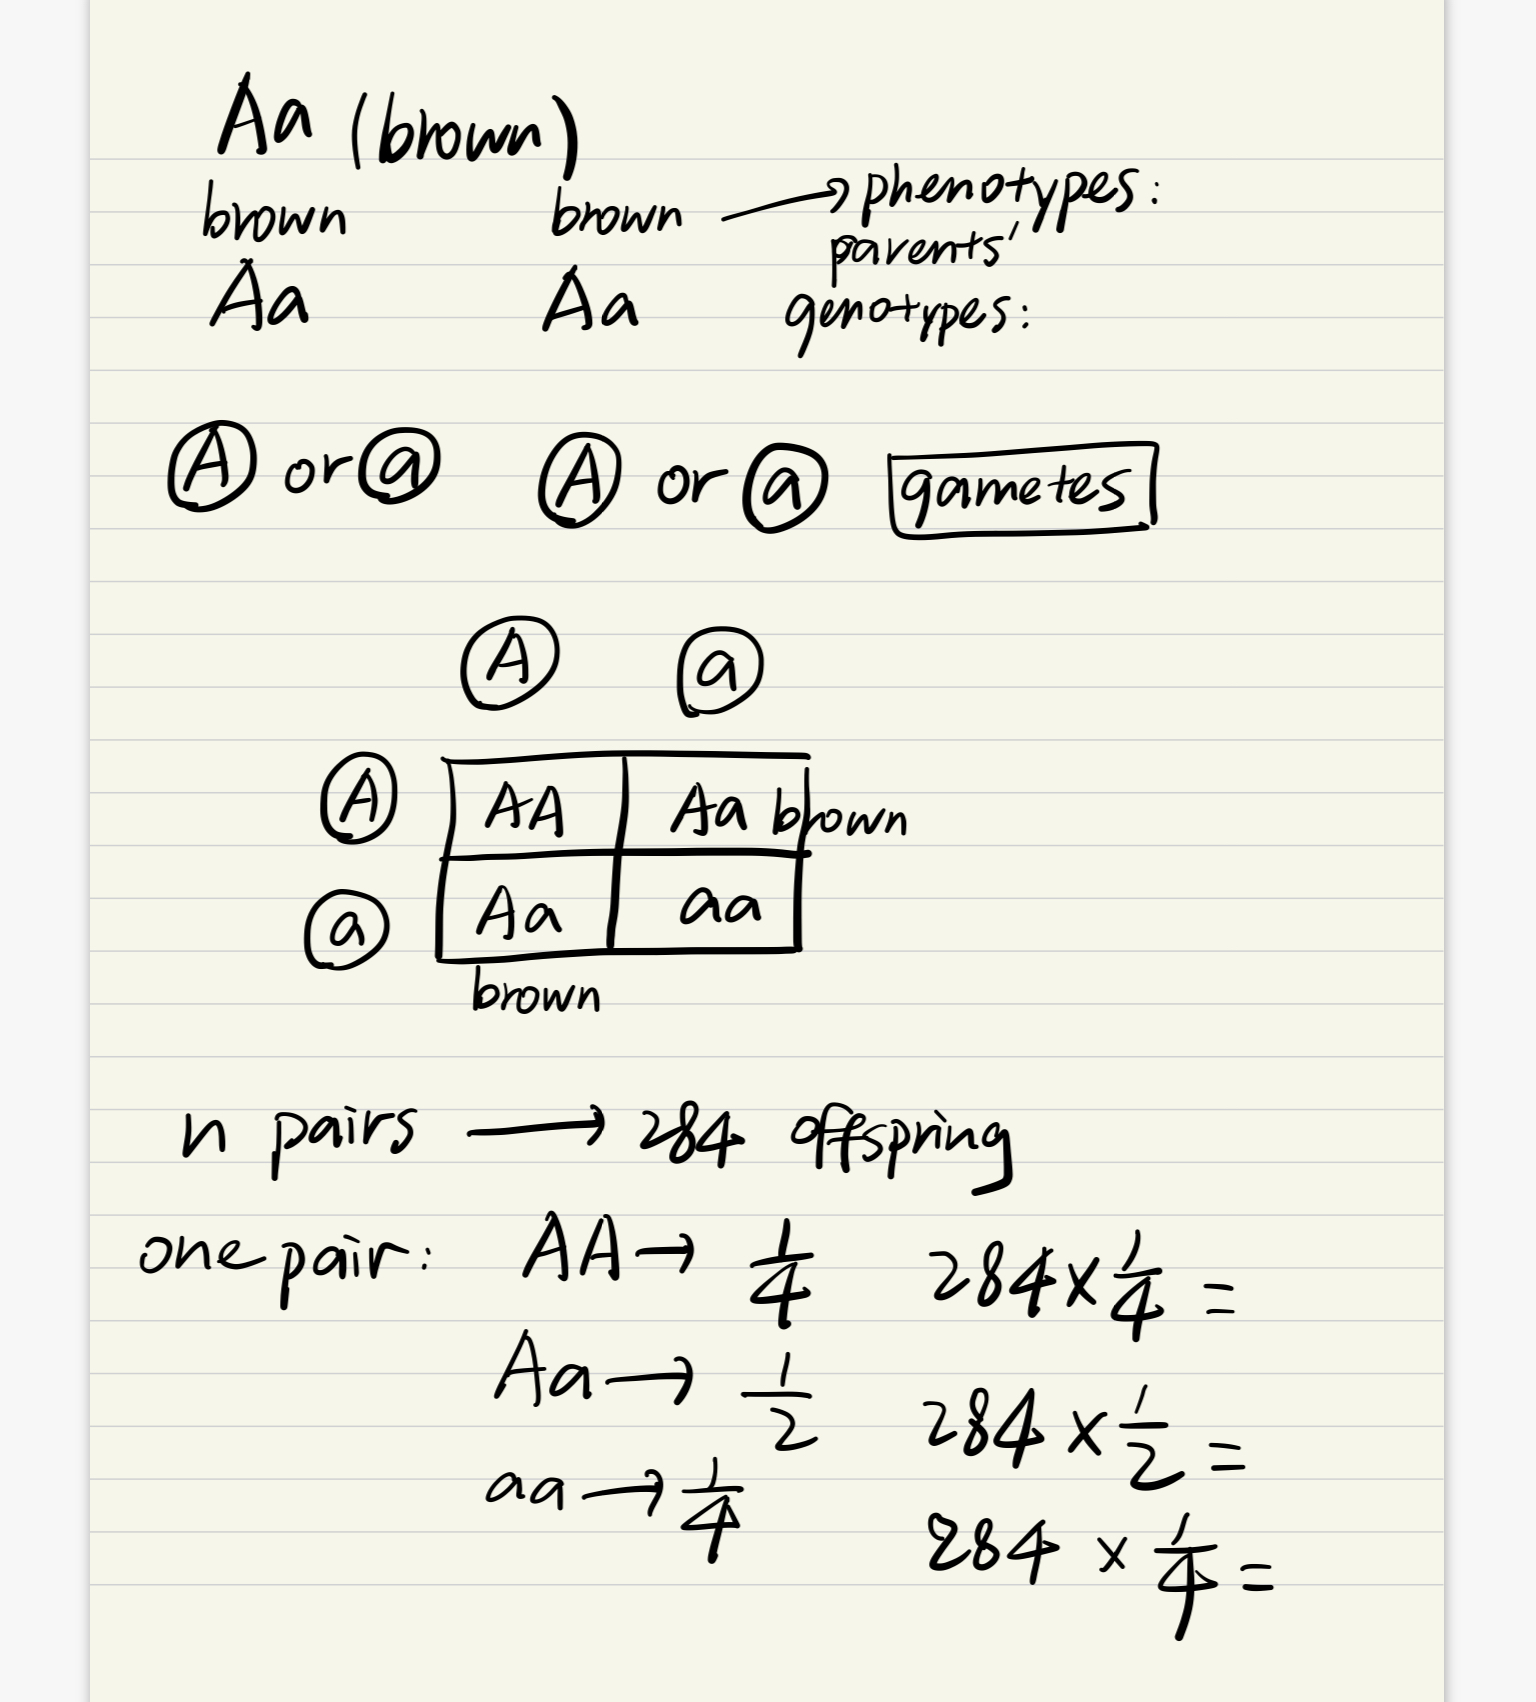 Aa (brown)
brown brown → phenotypes:
parents'
Aa Aa genotypes:
A or a A or a gametes
A a
A AA Aa brown
a Aa aa
brown
n pairs → 284 offspring
one pair: AA → 1/4 284 × 1/4 =
Aa → 1/2 284 × 1/2 =
aa → 1/4 284 × 1/4 =